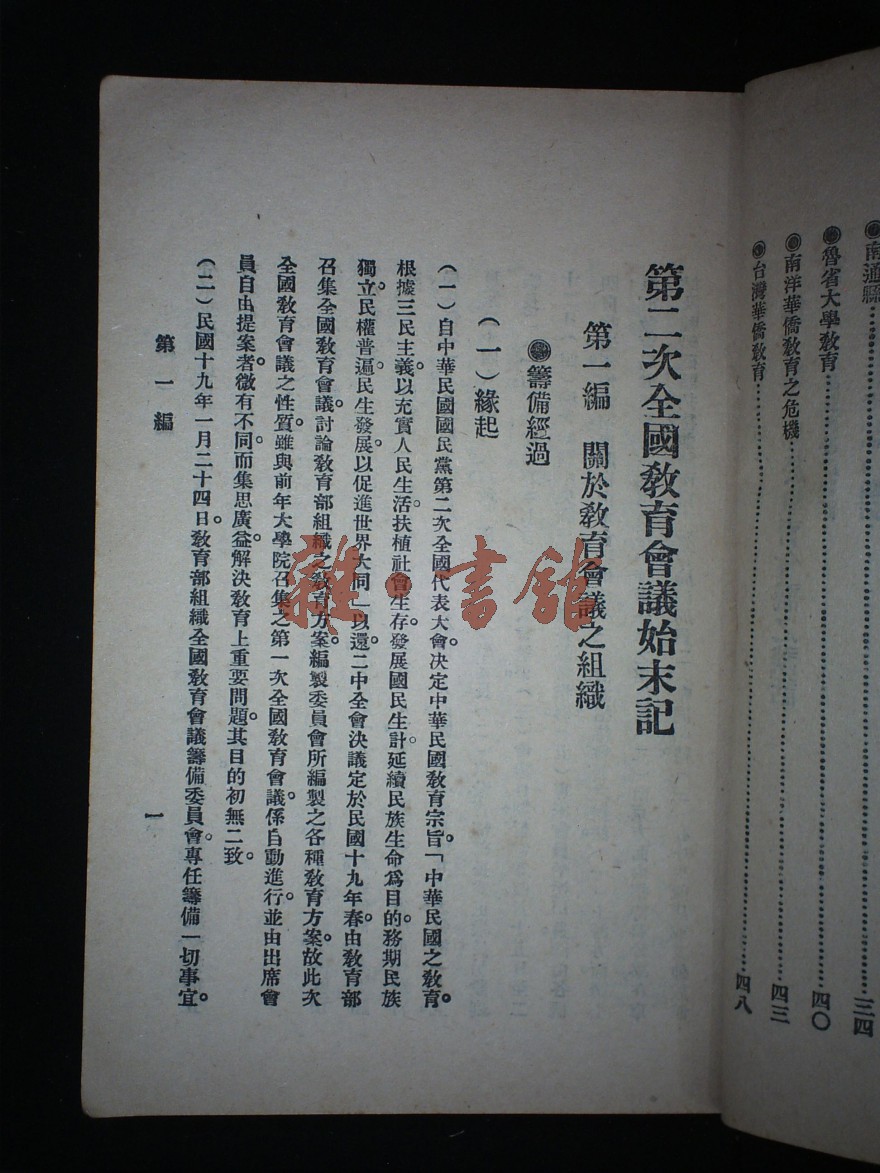 南通縣⋯⋯⋯⋯三四
魯省大學教育⋯⋯⋯⋯四〇
南洋華僑教育之危機⋯⋯⋯⋯四三
台灣華僑教育⋯⋯⋯⋯四八
第二次全國教育會議始末記
第一編　關於教育會議之組織
◉籌備經過
（一）緣起
（一）自中華民國國民黨第二次全國代表大會決定中華民國教育宗旨。「中華民國之教育。
根據三民主義。以充實人民生活扶植社會生存。發展國民生計。延續民族生命爲目的。務期民族
獨立。民權普遍。民生發展。以促進世界大同」以還二中全會決議定於民國十九年春。由教育部
召集全國教育會議。討論教育部組織之教育方案編製委員會所編製之各種教育方案。故此次
全國教育會議之性質。雖與前年大學院召集之第一次全國教育會議。係自動進行。並由出席會
員自由提案者。微有不同。而集思廣益。解決教育上重要問題。其目的初無二致。
（二）民國十九年一月二十四日。教育部組織全國教育會議籌備委員會。專任籌備一切事宜。
第一編
一
雜·書館